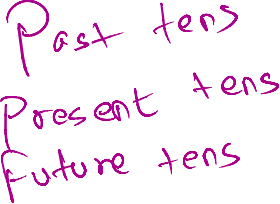 Past tens
Present tens
Future tens